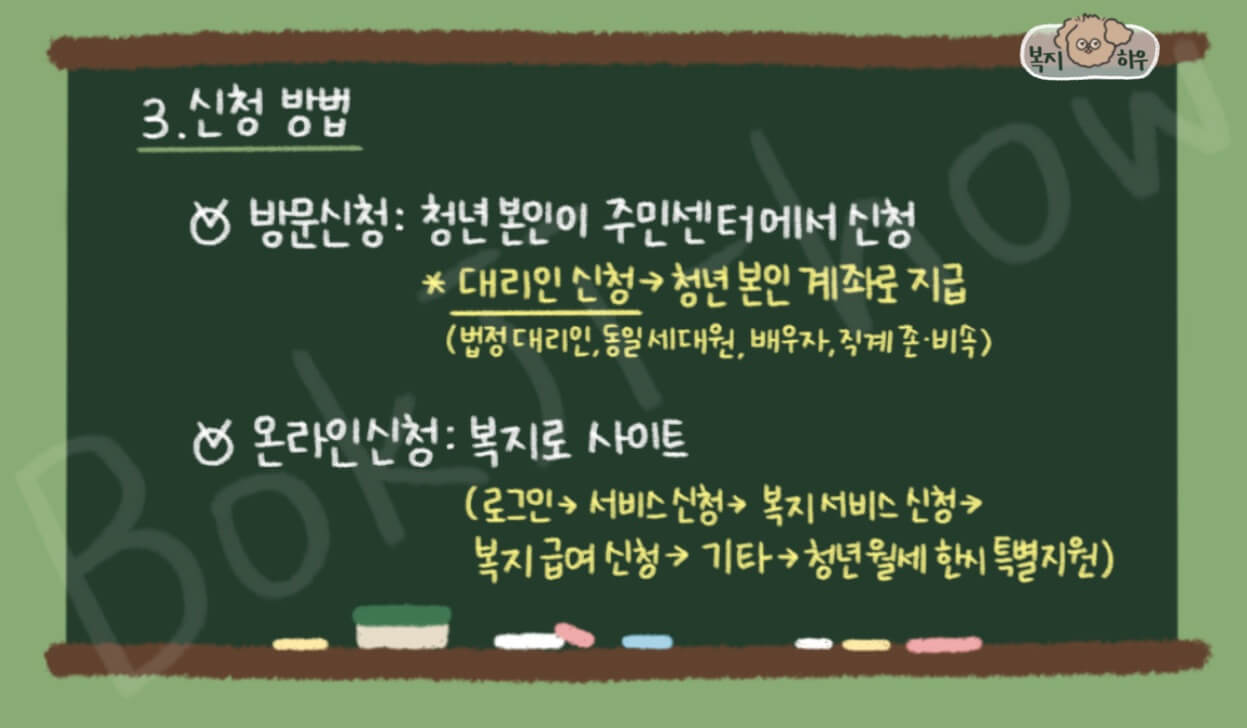 복지 하우
3. 신청 방법
방문신청: 청년 본인이 주민센터에서 신청
* 대리인 신청→청년 본인 계좌로 지급
(법정 대리인, 동일 세대원, 배우자, 직계 존·비속)
온라인신청: 복지로 사이트
(로그인→ 서비스 신청→ 복지 서비스 신청→
복지 급여 신청→ 기타→청년 월세 한시 특별지원)
Bokji-how